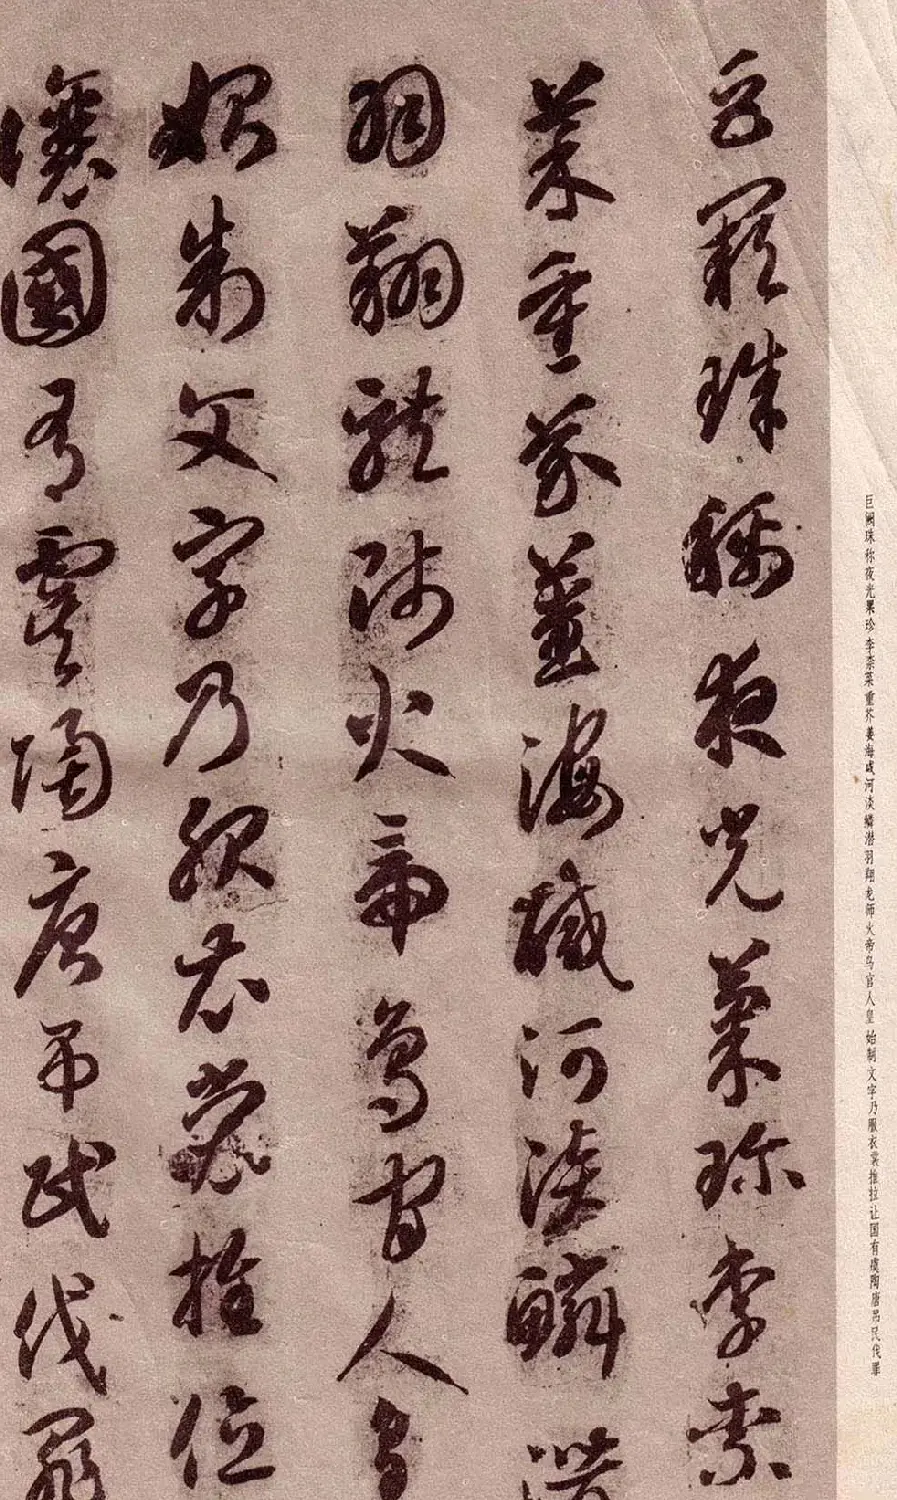 巨闕珠稱夜光菓珍李柰
菜重芥薑海醎河淡鱗潛
羽翔龍師火帝鳥官人皇
始制文字乃服衣裳推位
讓國有虞陶唐弔民伐罪
巨阙珠称夜光果珍李柰菜重芥姜海咸河淡鳞潜羽翔龙师火帝鸟官人皇始制文字乃服衣裳推拉让国有虞陶唐吊民伐罪